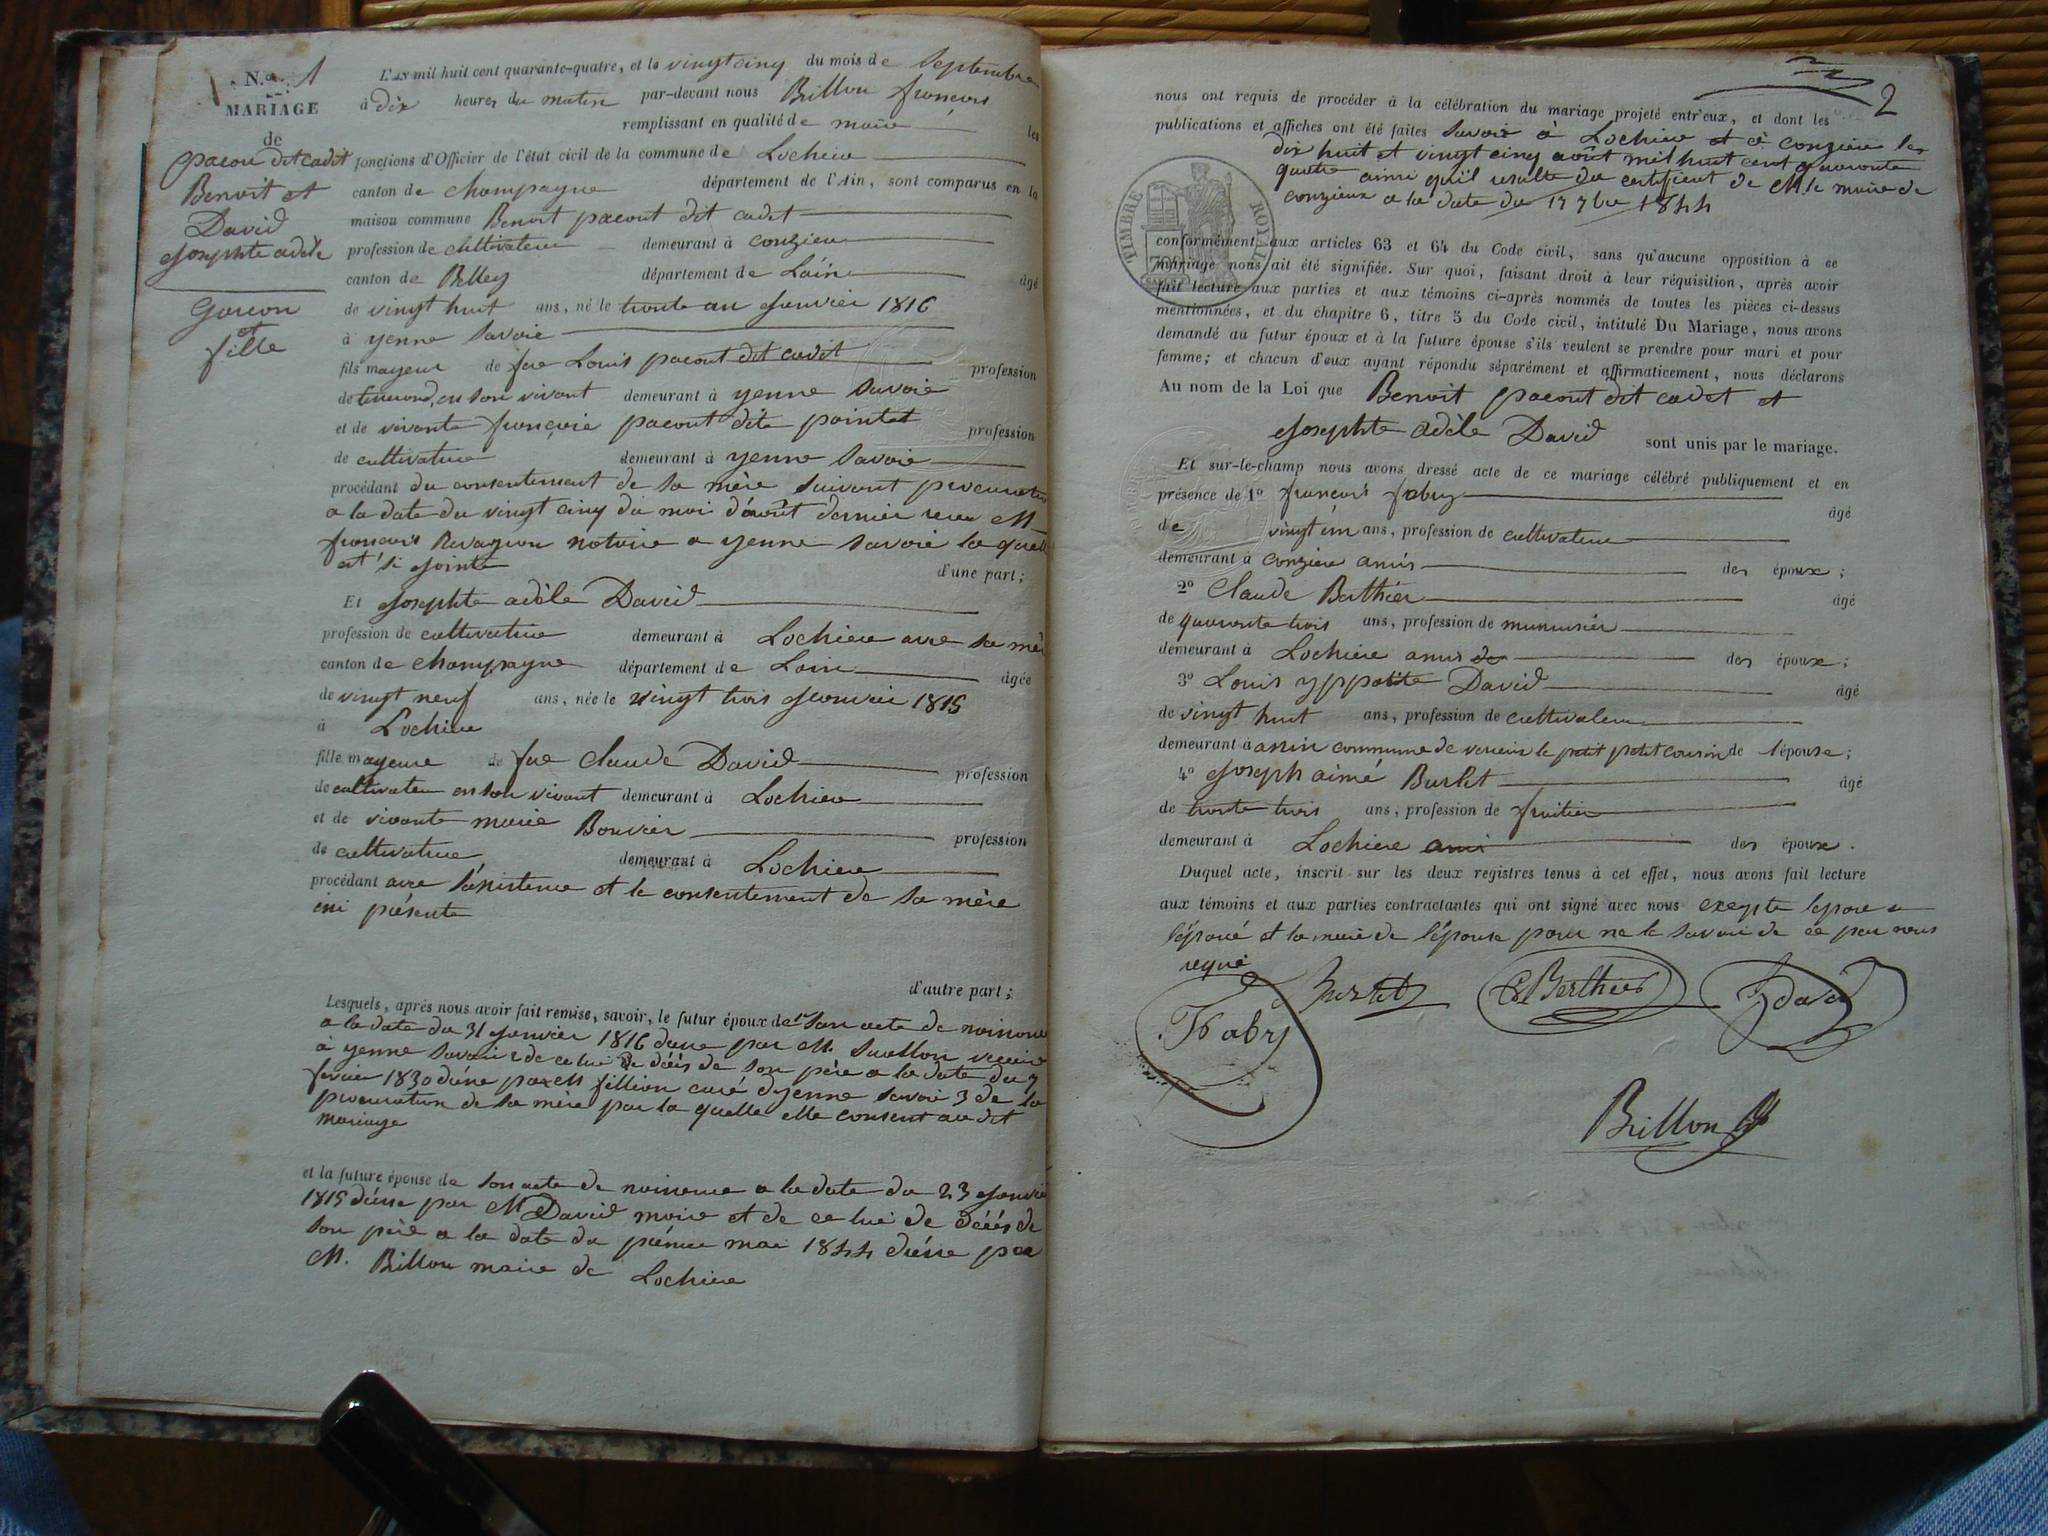 N.º 1
MARIAGE
de
pacout dit cadet
Benoit et
David
Josephte adèle
Garcon
et
fille
L'an mil huit cent quarante-quatre, et le vingt cinq du mois de Septembre
à dix heures du matin par-devant nous Brillon françois
remplissant en qualité de maire les
fonctions d'Officier de l'état civil de la commune de Lochieu
canton de champagne département de l'Ain, sont comparus en la
maison commune Benoit pacout dit cadet
profession de cultivateur demeurant à conzieu
canton de Belley département de Lain âgé
de vingt huit ans, né le trente au Janvier 1816
à yenne Savoie
fils mayeur de feu Louis pacout dit cadet profession
de en son vivant demeurant à yenne Savoie
et de vivante françoise pacout dite pointet profession
de cultivatrice demeurant à yenne Savoie
procédant du consentement de sa mère suivant procuration
a la date du vingt cinq du moi d'août dernier recu M
françois notaire a yenne Savoie la quelle
est si jointe d'une part;
Et Josephte adèle David
profession de cultivatrice demeurant à Lochieu avec sa mère
canton de champagne département de Lain âgée
de vingt neuf ans, née le vingt trois Janvier 1815
à Lochieu
fille mayeure de feu Claude David profession
de cultivateur en son vivant demeurant à Lochieu
et de vivante marie Bouvier profession
de cultivatrice demeurant à Lochieu
procédant avec l'asistence et le consentement de sa mère
ici présente
d'autre part;
Lesquels, après nous avoir fait remise, savoir, le futur époux de 1º Son acte de naisance
a la date du 31 Janvier 1816 par M.
à yenne Savoie 2 de celui de décés de son père a la date du 7
fevrier 1830 par M fillion curé d'yenne Savoie 3 de la
procuration de sa mère par la quelle elle consent au dit
mariage
et la future épouse de son acte de naisence a la date du 23 Janvier
1815 par M David maire et de ce lui de décés de
son père a la date du mai 1844 par
M. Brillon maire de Lochieu
2
nous ont requis de procéder à la célébration du mariage projeté entr'eux, et dont les
publications et affiches ont été faites savoir à Lochieu et à conzieu les
dix huit et vingt cinq août mil huit cent quarante
quatre ainsi qu'il resulte du certificat de M. le maire de
conzieux a la date du 1844
TIMBRE ROYAL
conformément aux articles 63 et 64 du Code civil, sans qu'aucune opposition à ce
mariage nous ait été signifiée. Sur quoi, faisant droit à leur réquisition, après avoir
fait lecture aux parties et aux témoins ci-après nommés de toutes les pièces ci-dessus
mentionnées, et du chapitre 6, titre 5 du Code civil, intitulé Du Mariage, nous avons
demandé au futur époux et à la future épouse s'ils veulent se prendre pour mari et pour
femme; et chacun d'eux ayant répondu séparément et affirmativement, nous déclarons
Au nom de la Loi que Benoit pacout dit cadet et
Josephte adèle David sont unis par le mariage.
Et sur-le-champ nous avons dressé acte de ce mariage célébré publiquement et en
présence de 1º françois fabry âgé
de vingt un ans, profession de cultivateur
demeurant à conzieu amis des époux;
2º Claude Berthier âgé
de quarante trois ans, profession de munuisier
demeurant à Lochieu amis de des époux;
3º Louis yppolite David âgé
de vingt huit ans, profession de cultivateur
demeurant à commune de le petit petit cousin de l'épouse;
4º Joseph aimé Burlet âgé
de trente trois ans, profession de fruitier
demeurant à Lochieu ami des époux.
Duquel acte, inscrit sur les deux registres tenus à cet effet, nous avons fait lecture
aux témoins et aux parties contractantes qui ont signé avec nous exepte
et la mere de l'épouse pour ne le savoir de ce par nous
requi
F Fabry
Burlet
Cl Berthier
David
Brillon